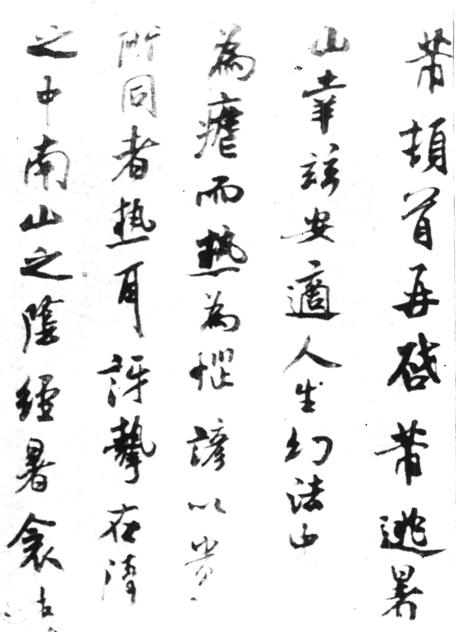 芾頓首再啓芾逃暑
山幸兹安適人生幻法中
為瘧而熱為惱諺以貴
所同者熱耳訝摯在清
之中南山之陰經暑衾